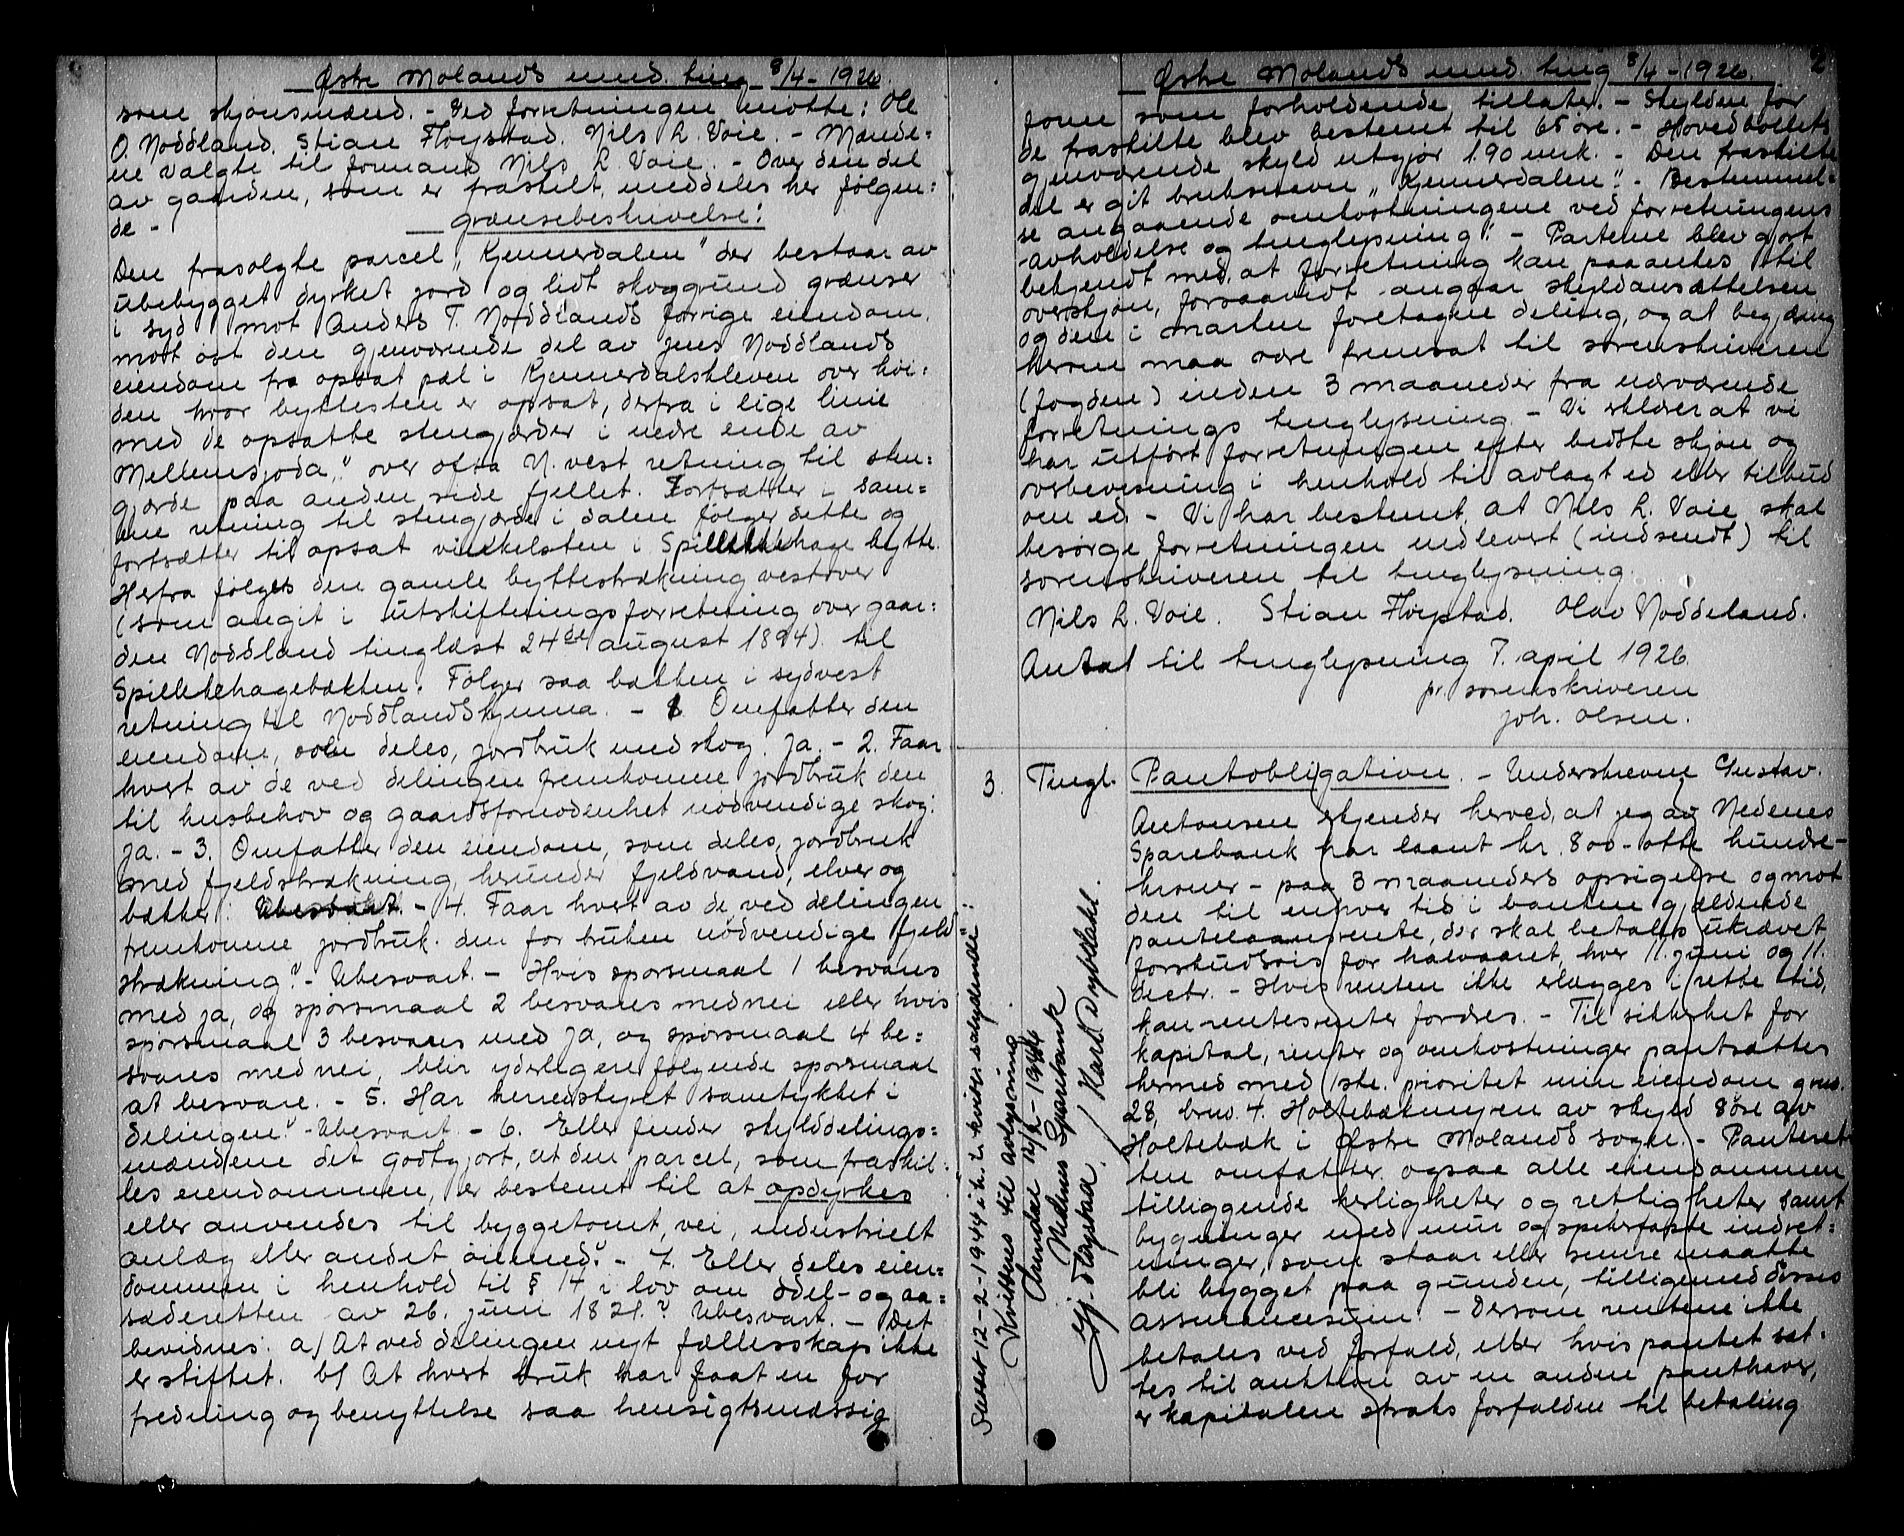 Østre Molands mnd. ting 8/4-1926.
som skjønsmænd. - Ved forretningen møtte: Ole
O. Noddland, Stian Fløystad, Nils L. Voie. - Mænde=
ne valgte til formand Nils L. Voie. - Over den del
av gaarden, som er fraskilt, meddeles her følgen=
de -
grænsebeskrivelse:
Den frasolgte parcel "Kjennerdalen" der bestaar av
ubebygget dyrket jord og lidt skoggrund grænser
i syd mot Anders T. Noddlands forrige eiendom,
mot øst den gjenværende del av Jens Noddlands
eiendom fra opsat pæl i Kjennerdalskleven over hei=
den hvor byttesten er opsat, derfra i lige linie
med de opsatte stengjærder i nedre ende av
Mellemsjoda", over ofta N. vest retning til sten=
gjærde paa anden side fjellet. Fortsætter i sam=
me retning til stengjærde i dalen følger dette og
fortsætter til opsat vinkelsten i Spilletehage bytte.
Herfra følges den gamle byttestrækning vestover
(som angit i utskiftningsforretning over gaar=
den Noddland tinglæst 24de august 1894) til
Spilletehagebækken. Følger saa bækken i sydvest
retning til Noddlandskjenna. - 1. Omfatter den
eiendom, som deles, jordbruk med skog. Ja. - 2. Faar
hvert av de ved delingen fremkomne jordbruk den
til husbehov og gaardsfornødenhet nødvendige skog:
Ja. - 3. Omfatter den eiendom, som deles, jordbruk
med fjeldstrækning, herunder fjeldvand, elver og
bækker: Ubesvart. - 4. Faar hvert av de ved delingen
fremkomne jordbruk den for bruken nødvendige fjeld=
strækning? - Ubesvart. - Hvis spørsmaal 1 besvares
med ja, og spørsmaal 2 besvares med nei eller hvis
spørsmaal 3 besvares med ja, og spørsmaal 4 be=
svares med nei, blir yderligere følgende spørsmaal
at besvare. - 5. Har herredstyret samtykket i
delingen? - Ubesvart. - 6. Eller finder skylddelings=
mændene det godtgjort, at den parcel, som fraskil=
les eiendommen, er bestemt til at opdyrkes
eller anvendes til byggetomt, vei, industrielt
anlæg eller andet øiemed? - 7. Eller deles eien=
dommen i henhold til § 14 i lov om odel- og aa=
sæderetten av 26. juni 1821? Ubesvart. - Det
bevidnes: a) At ved delingen nyt fællesskap ikke
er stiftet. b) At hvert bruk har faat en for
fredning og benyttelse saa hensigtsmæssig
Østre Molands mnd. ting 8/4-1926. 2
form som forholdende tillater. - Skylden for
de fraskilte blev bestemt til 65 øre. - Hovedbølets
gjenværende skyld utgjør 1.90 mrk. - Den fraskilte
del er git bruksnavn "Kjennerdalen". - Bestemmel=
se angaaende omkostningene ved forretningens
avholdelse og tinglysning: - Partene blev gjort
bekjendt med, at forretning kan paaankes til
overskjøn, forsaavidt angaar skyldansættelsen
og den i marken foretagne deling, og at begjæring
herom maa være fremsat til sorenskriveren
(fogden) inden 3 maaneder fra nærværende
forretnings tinglysning. - Vi erklærer at vi
har utført forretningen efter bedste skjøn og
overbevisning i henhold til avlagt ed eller tilbud
om ed. - Vi har bestemt, at Nils L. Voie skal
besørge forretningen indlevert (indsendt) til
sorenskriveren til tinglysning.
Nils L. Voie. Stian Fløystad. Olav Noddeland.
Antat til tinglysning 7. april 1926.
pr. sorenskriveren
Joh. Olsen.
3. Tingl. Pantobligation. - Underskrevne Gustav
Antonsen erkjender herved, at jeg av Nedenes
Sparebank har laant kr. 800 - otte hundre -
kroner - paa 3 maaneders opsigelse og mot
den til enhver tid i banken gjældende
pantelaansrente, der skal betales ukrævet
forskudsvis for halvaaret, hver 11. juni og 11.
decbr. - Hvis renten ikke erlægges i rette tid,
kan rentesrenter fordres. - Til sikkerhet for
kapital, renter og omkostninger pantsættes
hermed med 1ste prioritet min eiendom gno.
28, brno. 4. Holtebækmyren av skyld 8 øre av
Holtebæk i Østre Molands sogn. - Panteret=
ten omfatter ogsaa alle eiendommen
tilliggende herligheter og rettigheter samt
bygninger med mur og spikerfaste indret=
ninger, som staar eller senere maatte
bli bygget paa grunden, tilligemed disses
assurancesum. - Dersom rentene ikke
betales ved forfald, eller hvis pantet sæt=
tes til auktion av en anden panthaver,
er kapitalen straks forfalden til betaling
Slettet 12-2-1944 i h. t. kvitter. sålydende:
Kvitteres til avlysning
Arendal 12/2-1944
Nedenes Sparebank
Gj. Fløystad. / Karl Dybdahl.